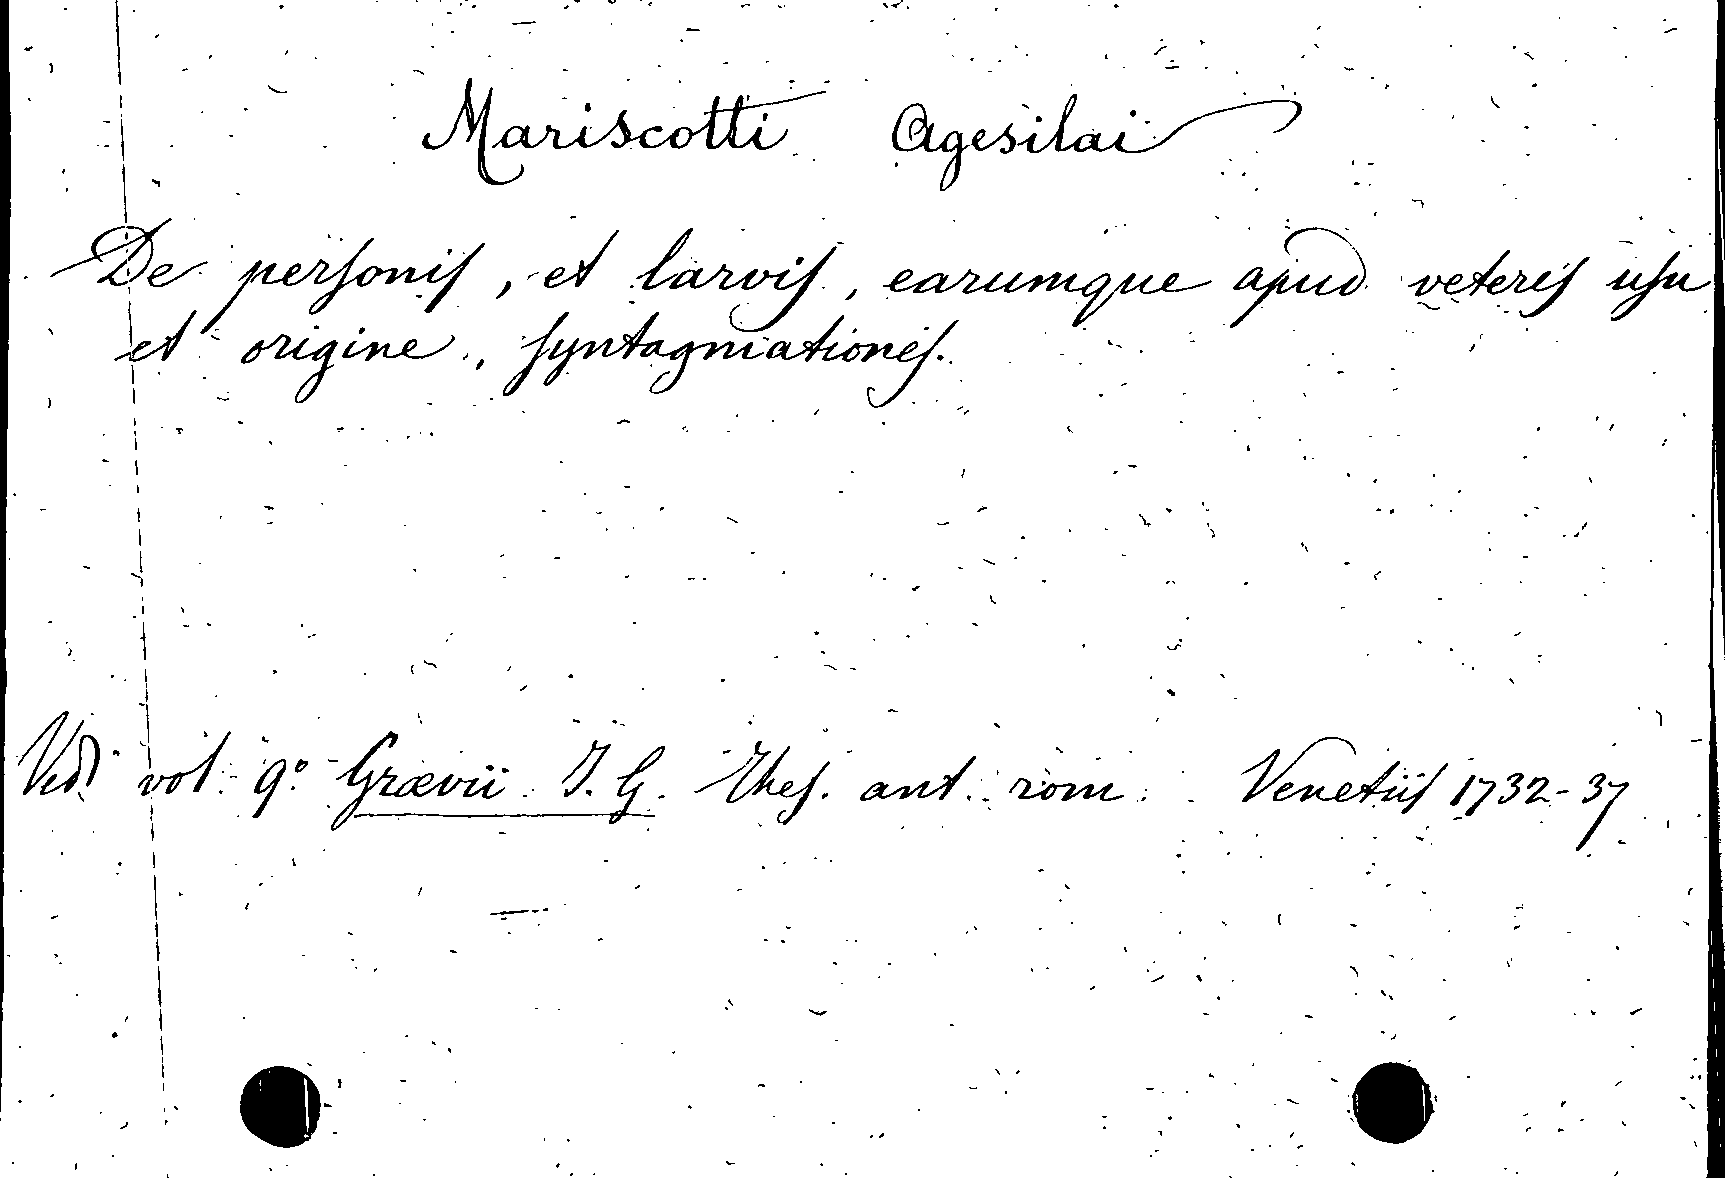 Mariscotti Agesilai
De personis, et larvis, earumque apud veteres usu
et origine, syntagmationes.
Vedi vol. 9º Grævii J. G. Thes. ant. rom. Venetiis 1732-37